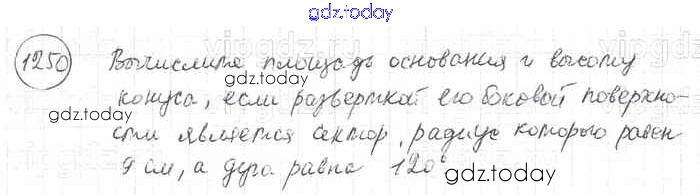 gdz.today
1250 Вычислите площадь основания и высоту
gdz.today
конуса, если развёрткой его боковой поверхно-
сти является сектор, радиус которого равен
gdz.today
9 см, а дуга равна 120°
gdz.today